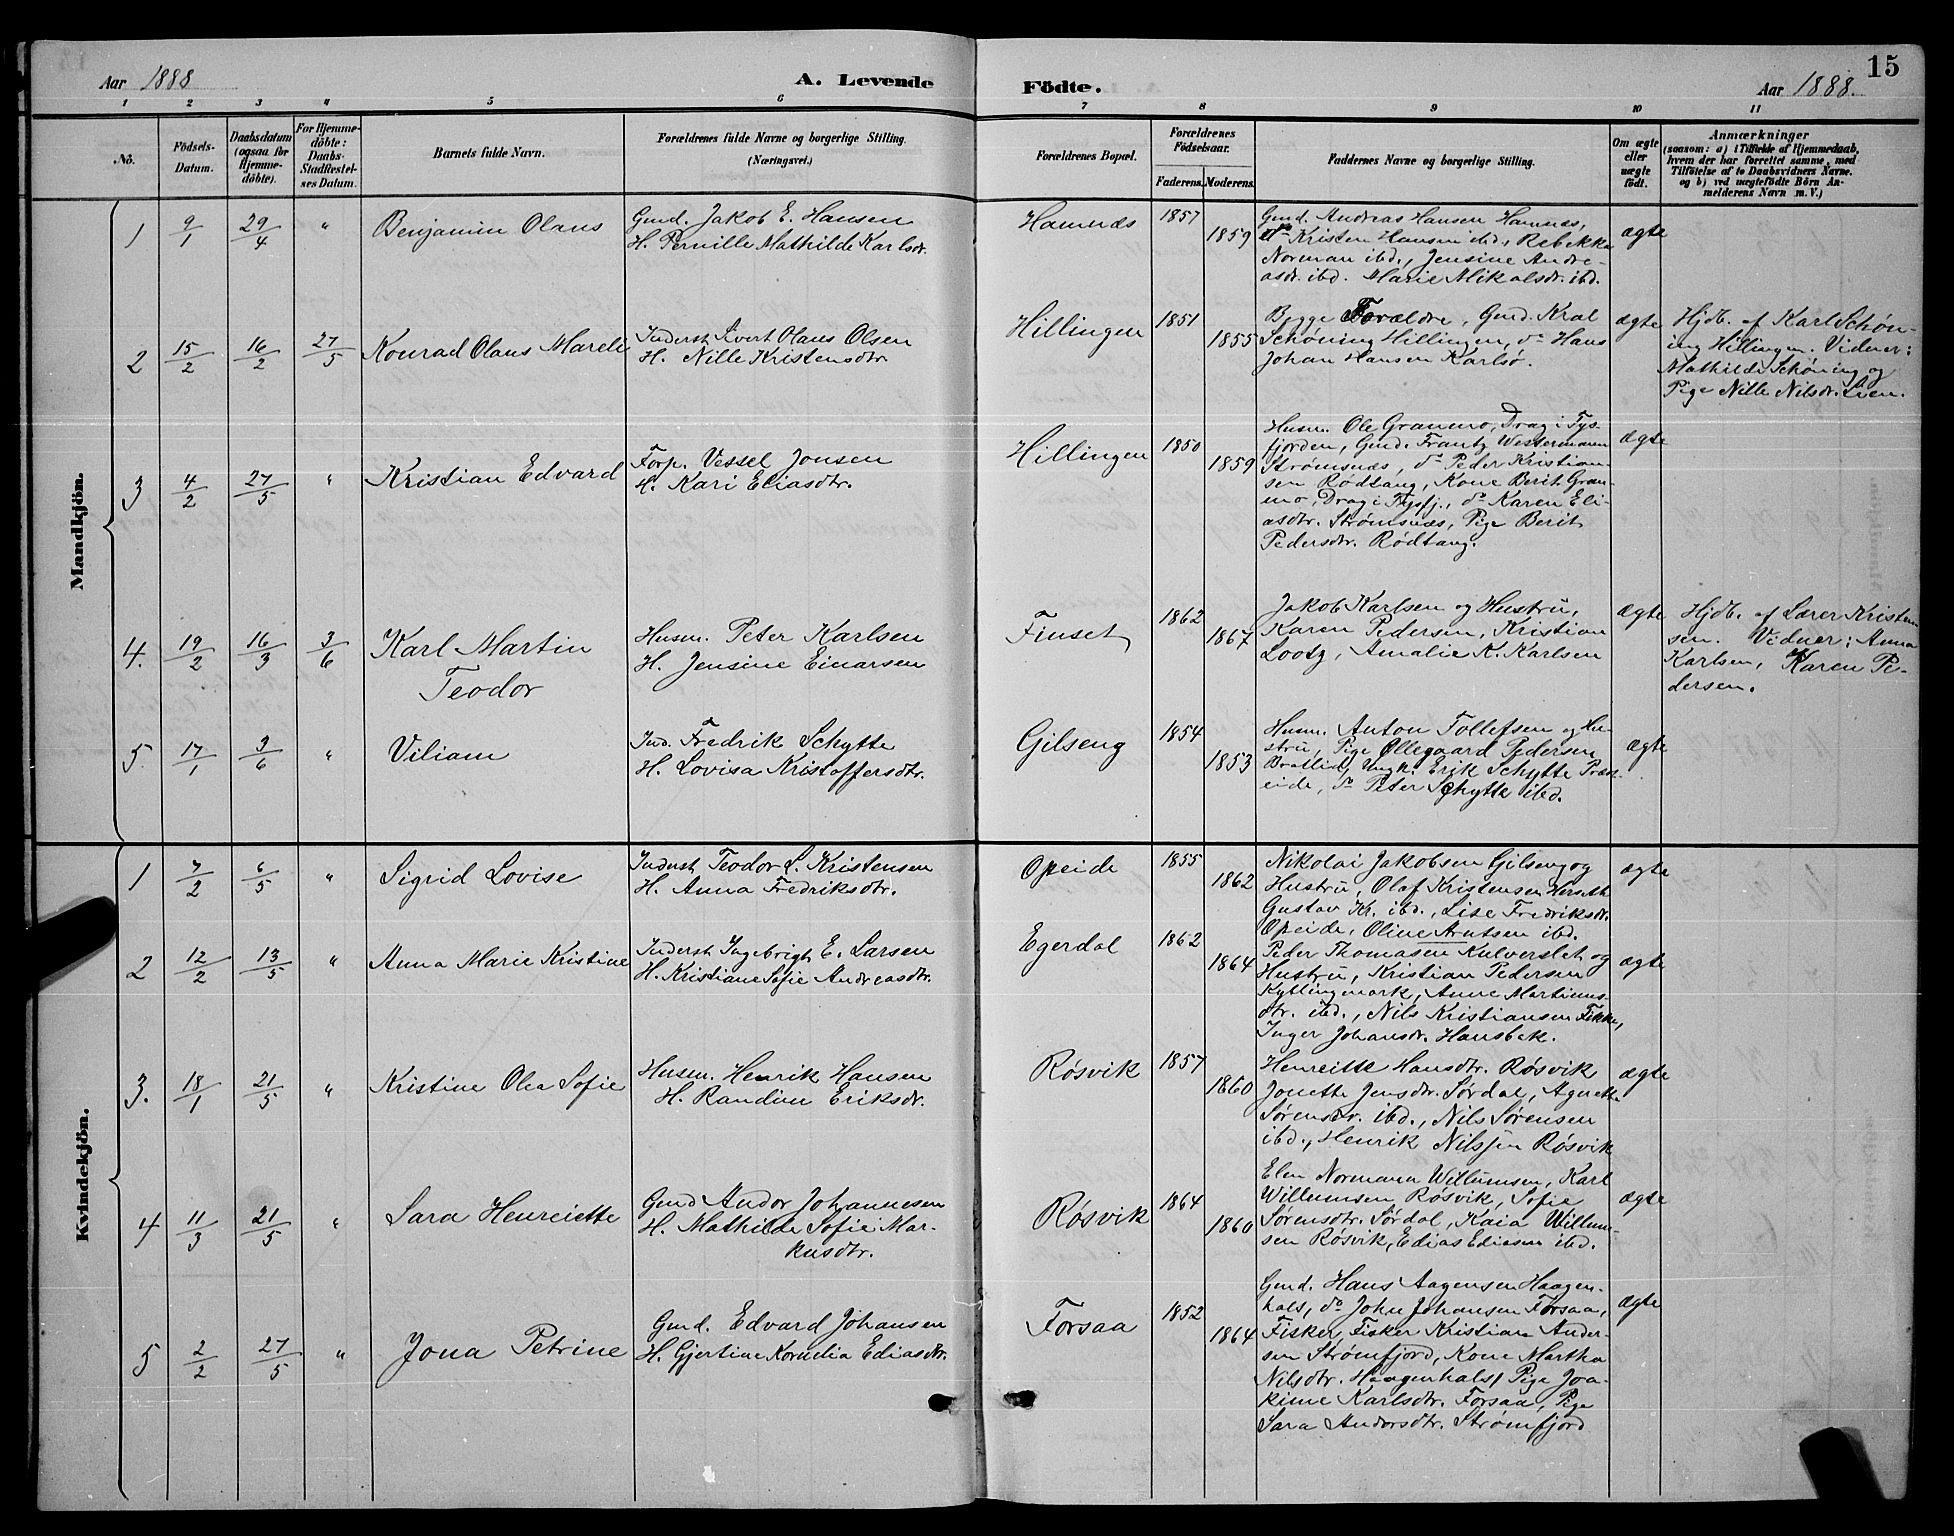 15
Aar 1888
A. Levende
Födte.
Aar 1888.
1 2 3 4 5 6 7 8 9 10 11
No.
Födsels-Datum.
Daabsdatum (ogsaa for Hjemme-döbte).
For Hjemme-döbte: Daabs-Stadfæstel-ses Datum.
Barnets fulde Navn.
Forældrenes fulde Navne og borgerlige Stilling.
(Næringsvei.)
Forældrenes Bopæl.
Forældrenes Födselsaar.
Faderens. Moderens.
Faddernes Navne og borgerlige Stilling.
Om ægte eller uægte födt.
Anmærkninger
(saasom: a) i Tilfælde af Hjemmedaab,
hvem der har forrettet samme, med
Tilföielse af to Daabsvidners Navne.
og b) ved uægtefödte Börn An-
melderens Navn m. V.)
Mandkjön.
1 9/1 29/4 "
Benjamin Olaus
Gmd. Jakob E. Hansen
H. Pernille Mathilde Karlsdr.
Hamnæs
1857
1859
Gmd. Andreas Hansen Hamnæs,
do Kristen Hansen ibd., Rebekka
Norman ibd., Jensine Andre-
asdr. ibd. Marie Mikalsdr. ibd.
ægte
2 15/2 16/2 27/5
Konrad Olaus Mareli
Inderst Sivert Olaus Olsen
H. Nille Kristensdtr
Hillingen
1851
1855
Begge Forældre, Gmd. Kral
Schøning Hillingen, do Hans
Johan Hansen Karlsø.
ægte
Hjdb. af Karl Schøn-
ing Hillingen. Vidner:
Mathilde Schøning og
Pige Nille Nilsdr. Lien.
3 4/2 27/5 "
Kristian Edvard
Forp. Vessel Jonsen
H. Kari Eliasdtr.
Hillingen
1850
1859
Husm. Ole Granmo, Drag i Tys-
fjorden, Gmd. Frantz Westermann
Strømsnæs, do Peder Kristian-
sen Rødtang, Kone Berit Gran-
mo, Drag i Tysfj., do Karen Eli-
asdtr. Strømsnæs, Pige Berit
Pedersdtr. Rødtang.
ægte
4. 19/2 16/3 3/6
Karl Martin
Teodor
Husm. Peter Karlsen
H. Jensine Einarsen
Finset
1862
1867
Jakob Karlsen og Hustru,
Karen Pedersen, Kristian
Lootz, Amalie K. Karlsen
ægte
Hjdb. af Lærer Kristen-
sen. Vidner: Anna
Karlsen, Karen Pe-
dersen.
5. 17/1 3/6 "
Viliam
Ind. Fredrik Schytte
H. Lovisa Kristoffersdtr.
Gilseng
1854
1853
Husm. Anton Tollefsen og Hu-
stru, Pige Ollegaard Pedersen
Bratlid, Ungk. Erik Schytte Præst-
eide, do Peter Schytte ibd.
ægte
Kvindekjön.
1 7/2 6/5 "
Sigrid Lovise
Inderst Teodor L. Kristensen
H. Anna Fredriksdtr.
Opeide
1855
1862
Nikolai Jakobsen Gilseng og
Hustru, Olaf Kristensen
Gustav Kr. ibd., Lise Fredriksdr.
Opeide, Oline Arntsen ibd.
ægte
2 12/2 13/5 "
Anna Marie Kristine
Inderst Ingebrigt E. Larsen
H. Kristiane Sofie Andreasdtr.
Egerdal
1862
1864
Peder Thomasen Kulverslet og
Hustru, Kristian Pedersen
Kytlingmark, Anne Martinus-
dtr. ibd., Nils Kristiansen Fikke,
Inger Johansdr. Hansbek.
ægte
3. 18/1 21/5 "
Kristine Olea Sofie
Husm. Henrik Hansen
H. Randine Eriksdr.
Røsvik
1857
1860
Henreitte Hansdtr. Røsvik
Jonette Jensdtr. Sørdal, Agnette
Sørensdr. ibd., Nils Sørensen
ibd., Henrik Nilssen Røsvik
ægte
4 11/3 21/5 "
Sara Henreiette
Gmd Andor Johannesen
H. Mathilde Sofie Mar-
kusdtr.
Røsvik
1864
1860
Elen Normann Willumsen, Karl
Willumsen Røsvik, Sofie
Sørensdtr. Sørdal, Kaia Willum-
sen Røsvik, Edias Ediasen ibd.
ægte
5 2/2 27/5 "
Jona Petrine
Gmd. Edvard Johansen
H. Gjertine Kornelia Ediasdtr.
Forsaa
1852
1864
Gmd. Hans Aagensen Haagen-
hals, do John Johansen Forsaa,
Fisker, Fisker Kristian Ander-
sen Strømfjord, Kone Martha
Nilsdtr. Haagenhals, Pige Joa-
kime Karlsdtr. Forsaa, Pige
Sara Andorsdtr. Strømfjord
ægte